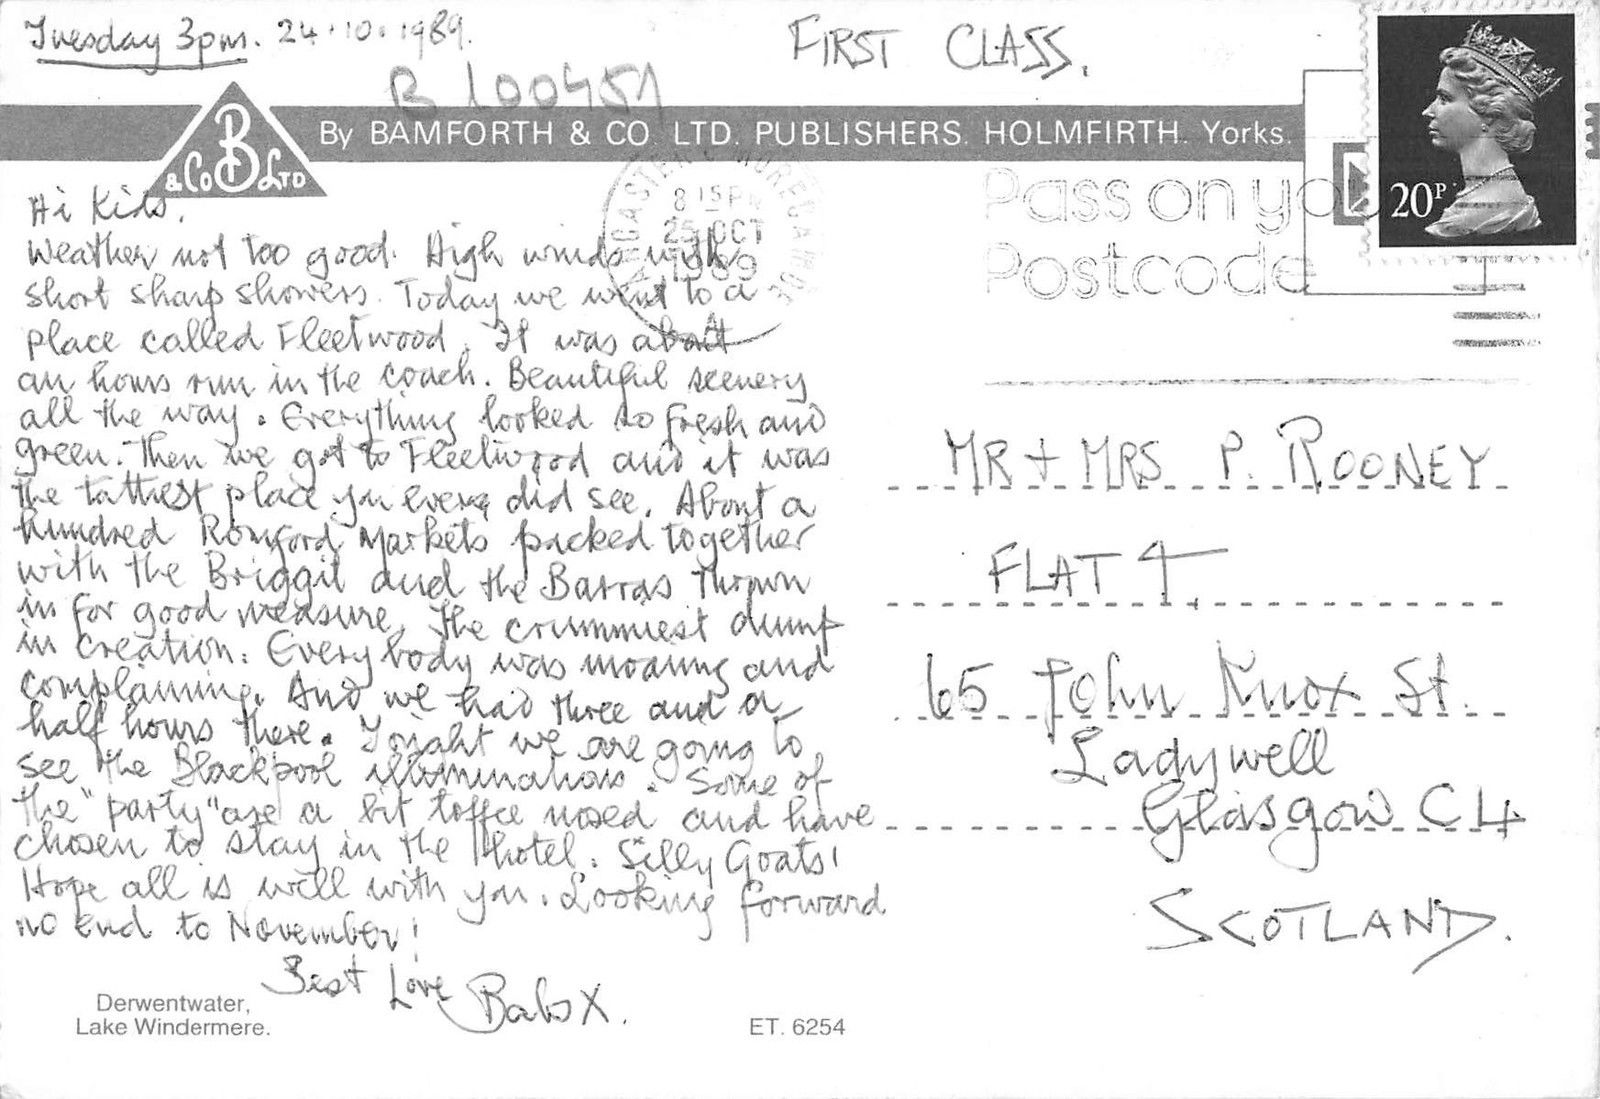 Tuesday 3pm. 24.10.1989.
FIRST CLASS.
B 100451
B & Co LTD
By BAMFORTH & CO. LTD. PUBLISHERS. HOLMFIRTH. Yorks.
20P
LANCASTER & MORECAMBE
8 15 PM
25 OCT
1989
A
Pass on your
Postcode
Hi Kids,
Weather not too good. High winds with
short sharp showers. Today we went to a
place called Fleetwood. It was about
an hours run in the coach. Beautiful scenery
all the way. Everything looked so fresh and
green. Then we got to Fleetwood and it was
the tattiest place you ever did see. About a
hundred Romford Markets packed together
with the Briggit and the Barras thrown
in for good measure. The crummiest dump
in creation. Everybody was moaning and
complaining. And we had three and a
half hours there. Tonight we are going to
see the Blackpool illuminations. Some of
the "party" are a bit toffee nosed and have
chosen to stay in the hotel. Silly Goats!
Hope all is well with you. Looking forward
no end to November!
Best Love
Babs X.
MR + MRS P. ROONEY
FLAT 4.
65 John Knox St.
Ladywell
Glasgow C4
SCOTLAND.
Derwentwater,
Lake Windermere.
ET. 6254